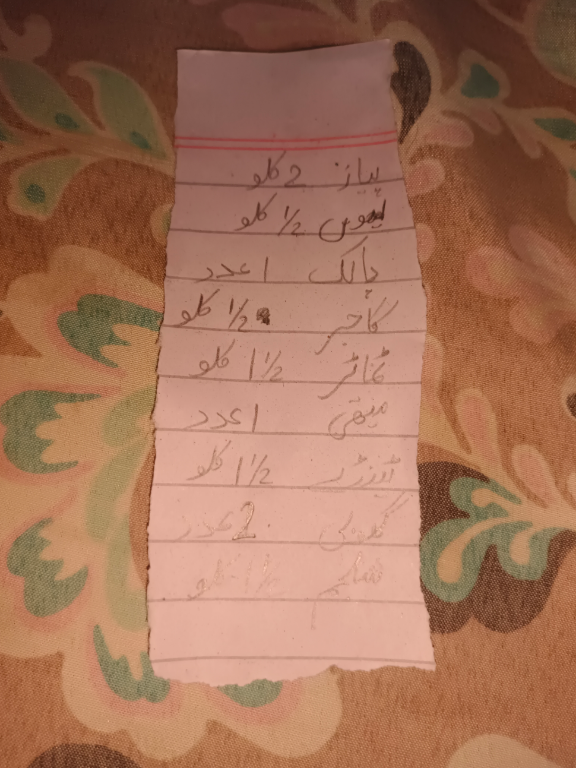 پیاز 2 کلو
لیموں 1/2 کلو
پالک 1 عدد
گاجر 1/2 کلو
ٹماٹر 1 1/2 کلو
میتھی 1 عدد
ٹینڈے 1 1/2 کلو
2 عدد
شلجم 1/2 کلو